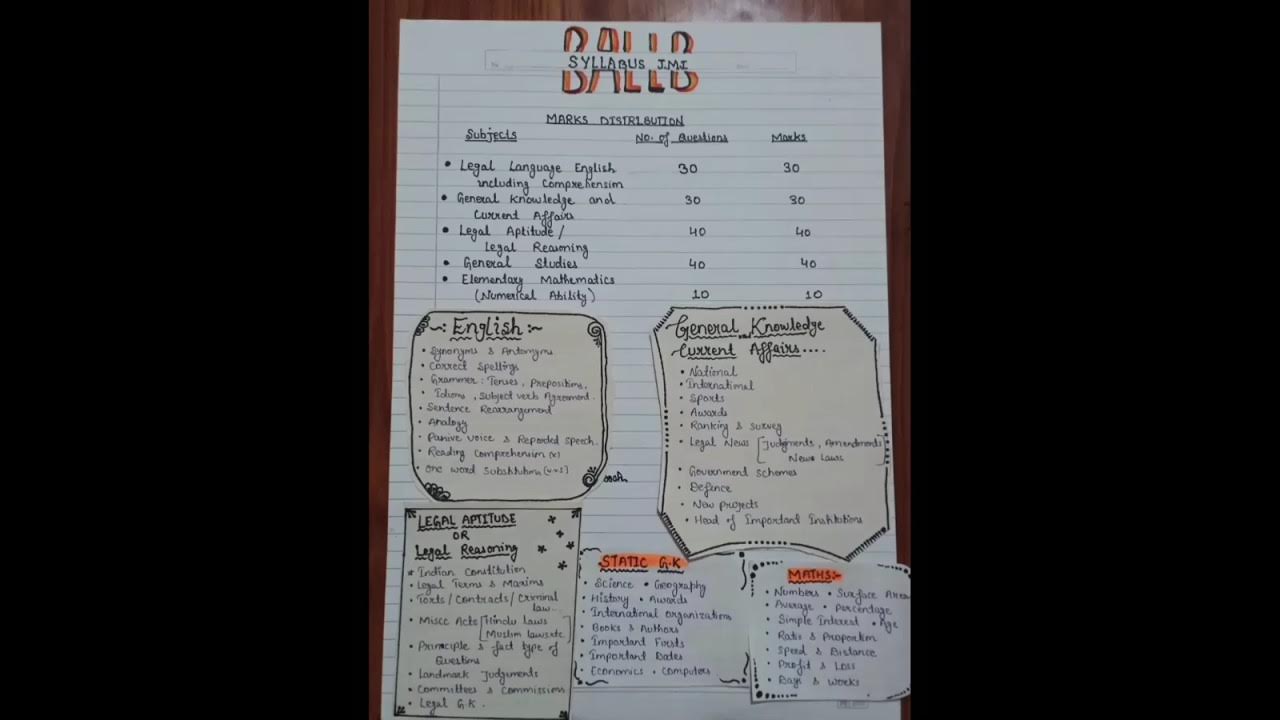 BALLB
SYLLABUS JMI
MARKS DISTRIBUTION
Subjects No. of Questions Marks
• Legal Language English 30 30
including Comprehension
• General Knowledge and 30 30
Current Affairs
• Legal Aptitude / 40 40
Legal Reasoning
• General Studies 40 40
• Elementary Mathematics
(Numerical Ability) 10 10
~: English :~
• Synonyms & Antonyms
• Correct Spellings
• Grammer : Tenses, Prepositions,
• Idioms, Subject verb Agreement.
• Sentence Rearrangement
• Analogy
• Passive voice & Reported speech.
• Reading Comprehension (x)
• One word Substitutions
General Knowledge
Current Affairs....
• National
• International
• Sports
• Awards
• Ranking & survey
• Legal News [Judgments, Amendments
News Laws]
• Government schemes
• Defence
• New projects
• Head of Important Institutions
LEGAL APTITUDE
OR
Legal Reasoning
• Indian Constitution
• Legal Terms & Maxims
• Torts / Contracts / Criminal
law...
• Misce Acts [Hindu Laws
Muslim laws etc]
• Principle & fact type of
Questions
• Landmark Judgements
• Committees & Commissions
• Legal G.K.
STATIC G.K
• Science • Geography
• History • Awards
• International organizations
• Books & Authors
• Important Firsts
• Important Dates
• Economics • Computers
MATHS:-
• Numbers • Surface Area
• Average • Percentage
• Simple Interest • Age
• Ratio & Proportion
• Speed & Distance
• Profit & Loss
• Days & Works